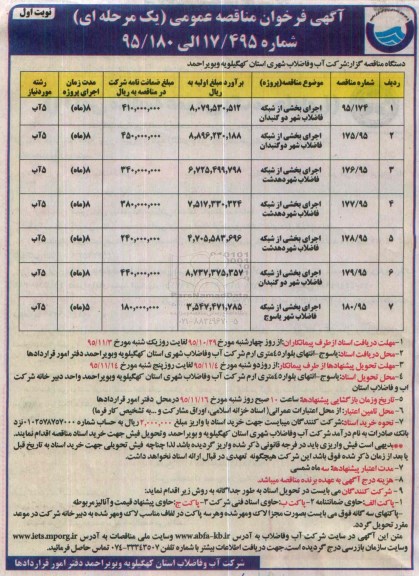 نوبت اول
آگهی فرخوان مناقصه عمومی (یک مرحله ای)
شماره ۱۷/۴۹۵ الی ۹۵/۱۸۰
دستگاه مناقصه گزار:شرکت آب وفاضلاب شهری استان کهگیلویه وبویراحمد
ردیف شماره مناقصه موضوع مناقصه(پروژه) برآورد مبلغ اولیه به ریال مبلغ ضمانت نامه شرکت در مناقصه به ریال مدت زمان اجرای پروژه رشته موردنیاز
۱ ۹۵/۱۷۴ اجرای بخشی از شبکه فاضلاب شهر دوگنبدان ۸,۰۷۹,۵۳۰,۵۱۲ ۴۱۰,۰۰۰,۰۰۰ ۸(ماه) ۵آب
۲ ۱۷۵/۹۵ اجرای بخشی از شبکه فاضلاب شهر دوگنبدان ۸,۸۹۶,۲۳۰,۱۸۸ ۴۵۰,۰۰۰,۰۰۰ ۸(ماه) ۵آب
۳ ۱۷۶/۹۵ اجرای بخشی از شبکه فاضلاب شهردهدشت ۶,۷۲۵,۴۹۹,۷۹۸ ۳۴۰,۰۰۰,۰۰۰ ۸(ماه) ۵آب
۴ ۱۷۷/۹۵ اجرای بخشی از شبکه فاضلاب شهردهدشت ۷,۵۱۷,۳۳۰,۳۲۴ ۳۸۰,۰۰۰,۰۰۰ ۸(ماه) ۵آب
۵ ۱۷۸/۹۵ اجرای بخشی از شبکه فاضلاب شهردهدشت ۴,۷۰۵,۵۸۳,۶۹۶ ۲۴۰,۰۰۰,۰۰۰ ۸(ماه) ۵آب
۶ ۱۷۹/۹۵ اجرای بخشی از شبکه فاضلاب شهر دوگنبدان ۸,۷۳۷,۳۷۵,۳۵۷ ۴۴۰,۰۰۰,۰۰۰ ۸(ماه) ۵آب
۷ ۱۸۰/۹۵ اجرای بخشی از شبکه فاضلاب شهر یاسوج ۳,۵۴۷,۴۷۱,۷۸۵ ۱۸۰,۰۰۰,۰۰۰ ۵(ماه) ۵آب
۱-مهلت دریافت اسناد ازطرف پیمانکاران:از روز چهارشنبه مورخ ۹۵/۱۰/۲۹ لغایت روزیک شنبه مورخ ۹۵/۱۱/۳
۲-محل دریافت اسناد:یاسوج-انتهای بلوار۴۵متری ارم شرکت آب وفاضلاب شهری استان کهگیلویه وبویراحمد دفتر امور قراردادها
۳-مهلت تحویل پیشنهادها از طرف پیمانکار:از روزدو شنبه مورخ ۹۵/۱۱/۴ لغایت روزپنج شنبه مورخ ۹۵/۱۱/۱۴
۴-محل تحویل اسناد:یاسوج-انتهای بلوار۴۵متری ارم شرکت آب وفاضلاب شهری استان کهگیلویه وبویراحمد واحد دبیر خانه شرکت آب و فاضلاب استان
۵-تاریخ وزمان بازگشایی پیشنهادها: ساعت ۱۰ صبح روز شنبه مورخ ۹۵/۱۱/۱۶ درمحل دفتر امور قراردادها
۶-محل تامین اعتبار: از محل اعتبارات عمرانی( اسناد خزانه اسلامی، اوراق مشارکت و ...به تشخیص کار فرما)
۷-نحوه خرید اسناد:شرکت کنندگان میبایست جهت خرید اسناد با واریز مبلغ ۲,۰۰۰,۰۰۰ ریال به حساب شماره ۰۱۰۲۵۷۸۷۵۷۰۰۰نزد بانک صادرات به نام درآمد شرکت آب وفاضلاب شهری استان کهگیلویه وبویراحمد وتحویل فیش جهت خرید اسناد مناقصه اقدام نمایند.
**بدیهی است فیش واریزی باید در فرجه قانونی ذکر شده واریز گردیده باشد لذا چنانچه فیش تحویلی جهت خرید اسناد به تاریخ قبل یا بعد از زمان ذکر شده فوق باشد این شرکت هیچگونه تعهدی در قبال ارائه اسناد نخواهد داشت.
۷-مدت اعتبار پیشنهادها سه ماه شمسی
۸-هزینه درج آگهی به عهده برنده مناقصه میباشد.
۹- شرکت کنندگان می بایست در تحویل اسناد به طور جداگانه به روش زیر اقدام نماید:
۱-پاکت الف: حاوی ضمانتنامه ۲-پاکت ب:حاوی اسناد فنی شرکت ۳-پاکت ج: حاوی پیشنهاد قیمت وآنالیزمربوطه
-پاکتهای سه گانه فوق می بایست بصورت مجزا لاک ومهرشده وهرسه پاکت در لفاف مناسب لاک ومهر شده به دبیرخانه شرکت در موعد مقرر تحویل گردد.
متن این آگهی در سایت شرکت آب وفاضلاب به آدرس www.abfa-kb.ir وسایت ملی مناقصات به آدرس www.iets.mporg.ir وسایت سازمان بازرسی درج گردیده است. جهت دریافت اطلاعات بیشتر با شماره تلفن ۰۷۴-۳۳۳۴۳۵۰۷ تماس حاصل فرمائید.
شرکت آب وفاضلاب استان کهگیلویه وبویراحمد دفتر امور قراردادها